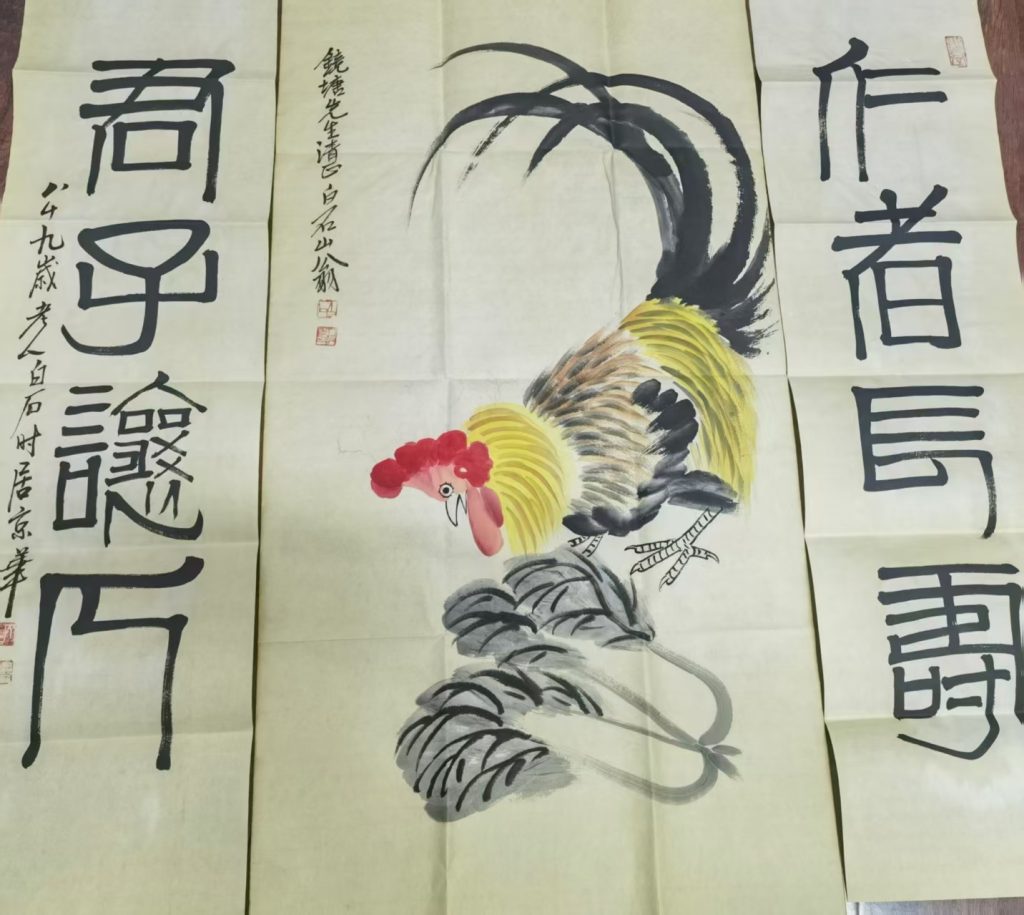 仁者長壽
鏡塘先生清正 白石山翁
君子
八十九歲老人白石时居京華